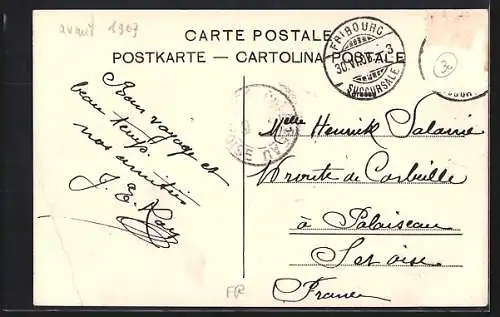 avant 1903
CARTE POSTALE
POSTKARTE — CARTOLINA POSTALE
FRIBOURG
SUCCURSALE
30
Bon voyage et
beau temps.
nos amitiés
J. E.
Melle Henriette
route de Corbeille
à Palaiseau
Set oise
France
FR